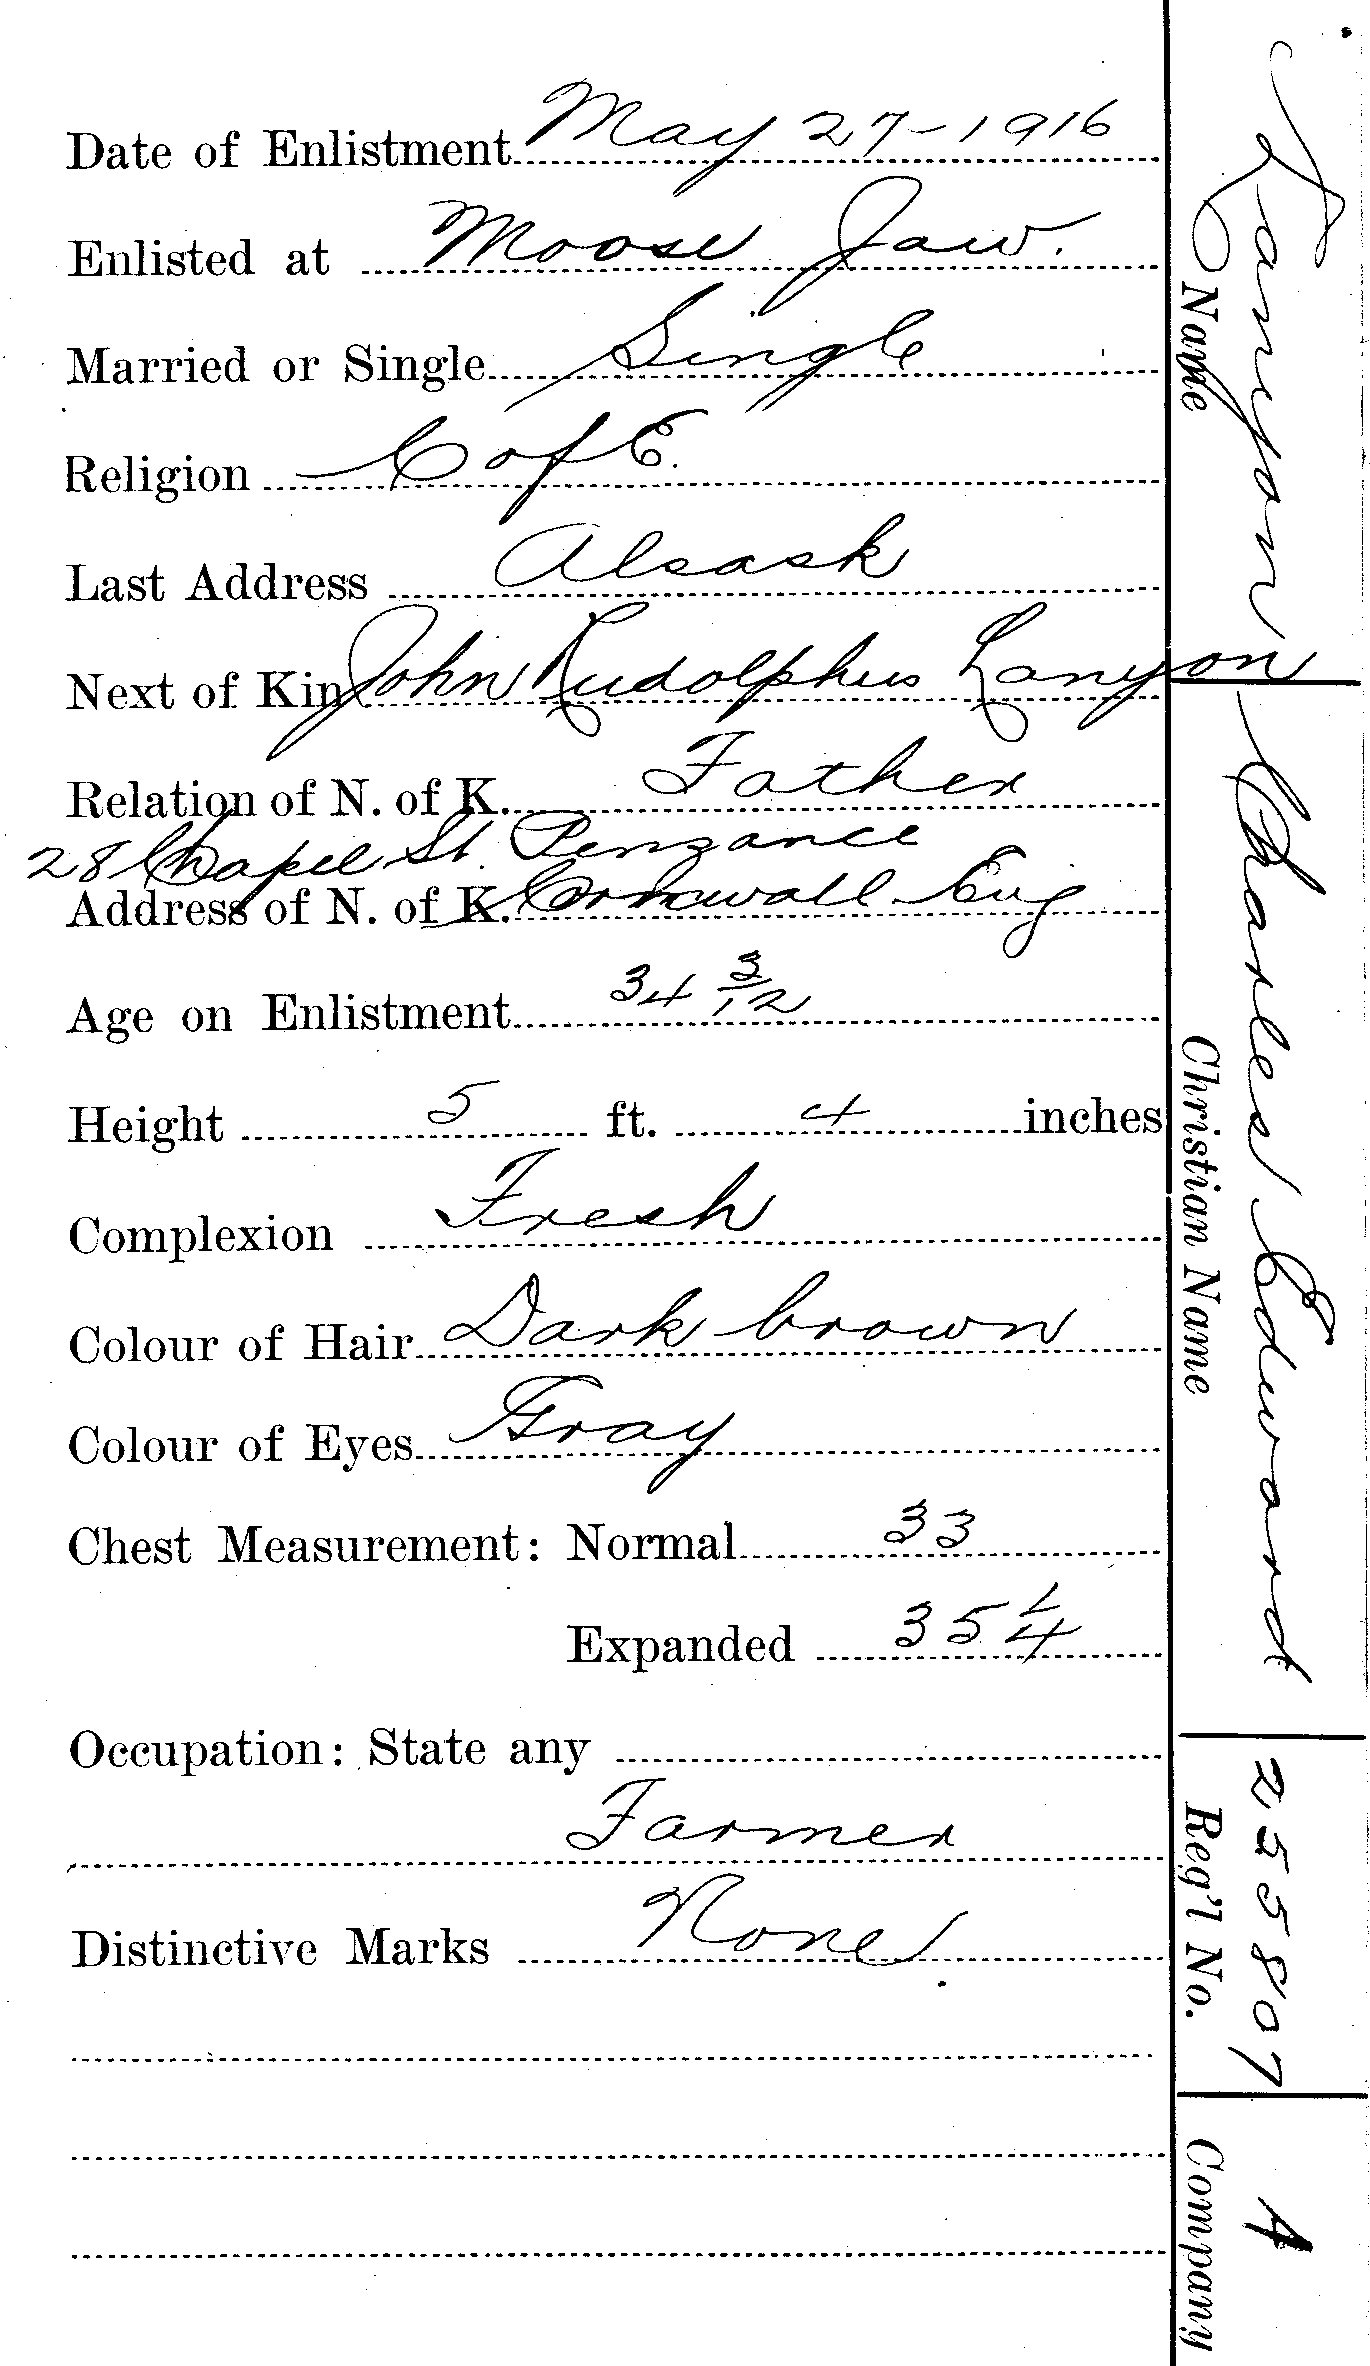 Date of Enlistment May 27-1916
Enlisted at Moose Jaw.
Married or Single Single
Religion C of E.
Last Address Alsask
Next of Kin John Rudolphus Lanyon
Relation of N. of K. Father
28 Chapel St. Penzance
Address of N. of K. Cornwall Eng
Age on Enlistment 34 3/12
Height 5 ft. 4 inches
Complexion Fresh
Colour of Hair Dark brown
Colour of Eyes Gray
Chest Measurement: Normal 33
Expanded 35 1/4
Occupation: State any
Farmer
Distinctive Marks None.
Lanyon
Name
Charles Edward
Christian Name
255807
Reg'l No.
A
Company